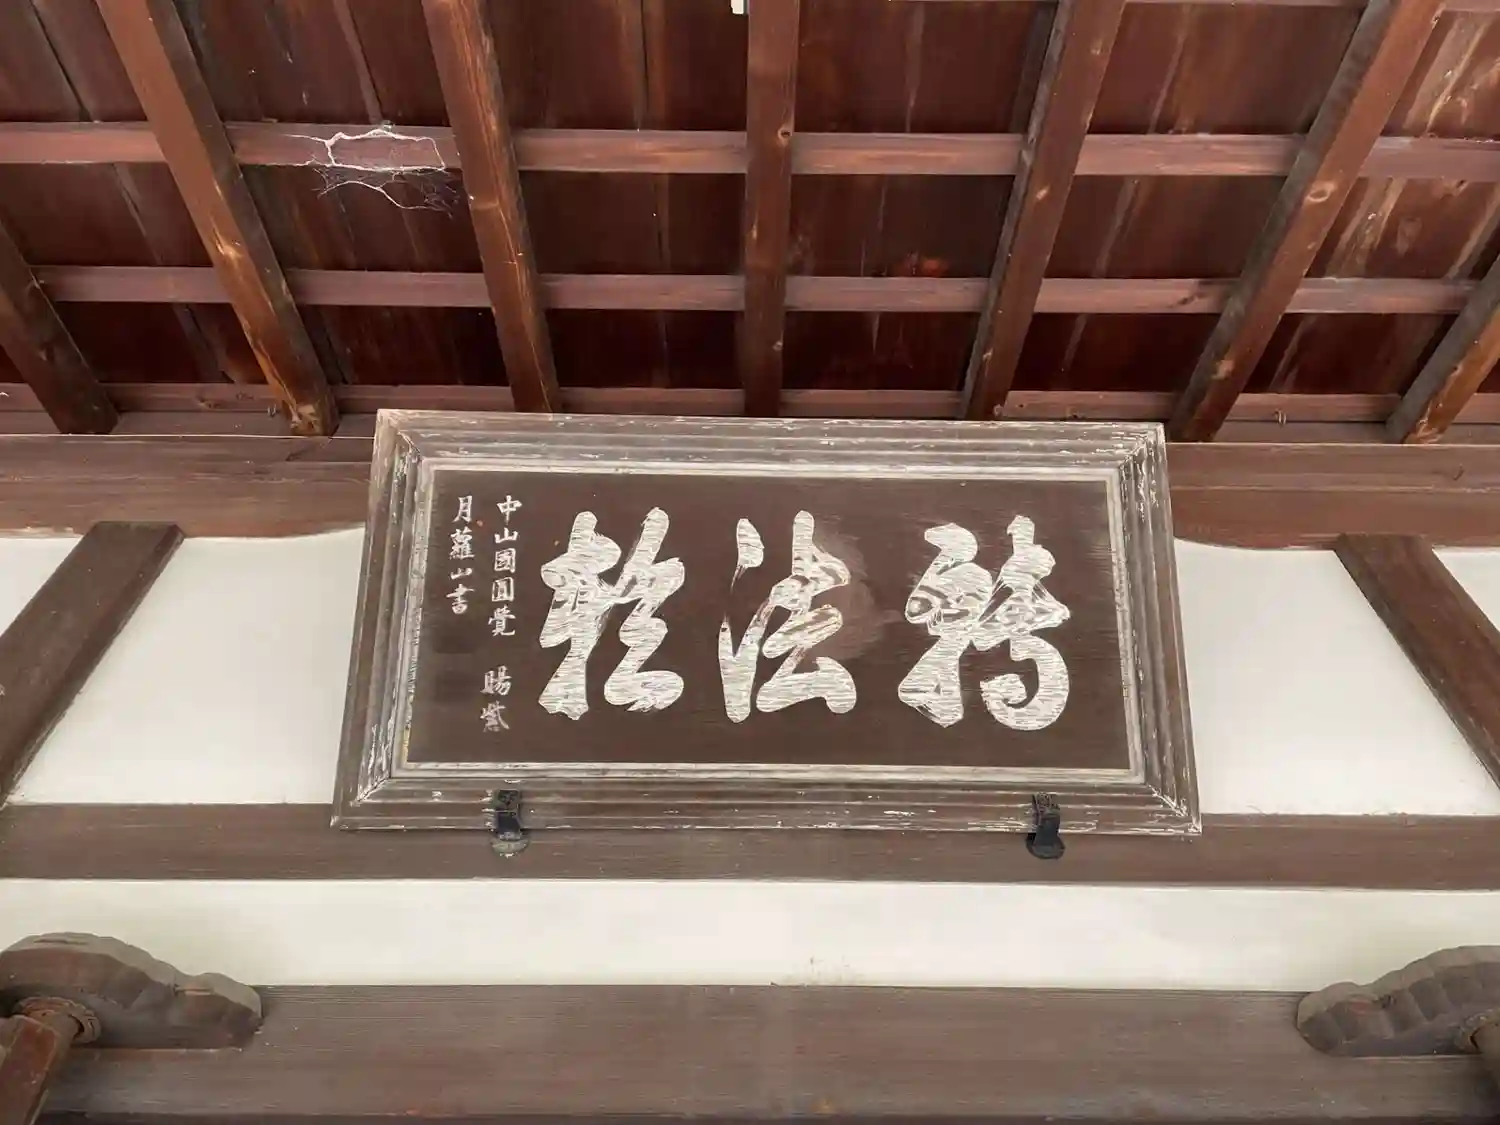 轉法輪
中山國圓覺 賜紫
月蘿山書